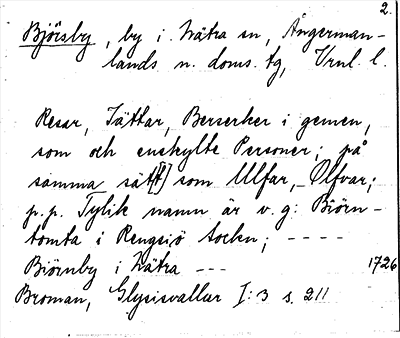 2.
Björsby, by i Nätra sn, Ångerman-
lands n. doms. tg, Vrnl. l.
Resar, Jättar, Berserker i gemen,
som och enskylte Personer; på
samma sätt[t] som Ulfar, Olfvar;
p.p. Tylik namn är v. g: Biörn-
tomta i Rengsiö Sockn; ----
Biörnby i Nätra --- 1726
Broman, Glysisvallar I:3 s. 211